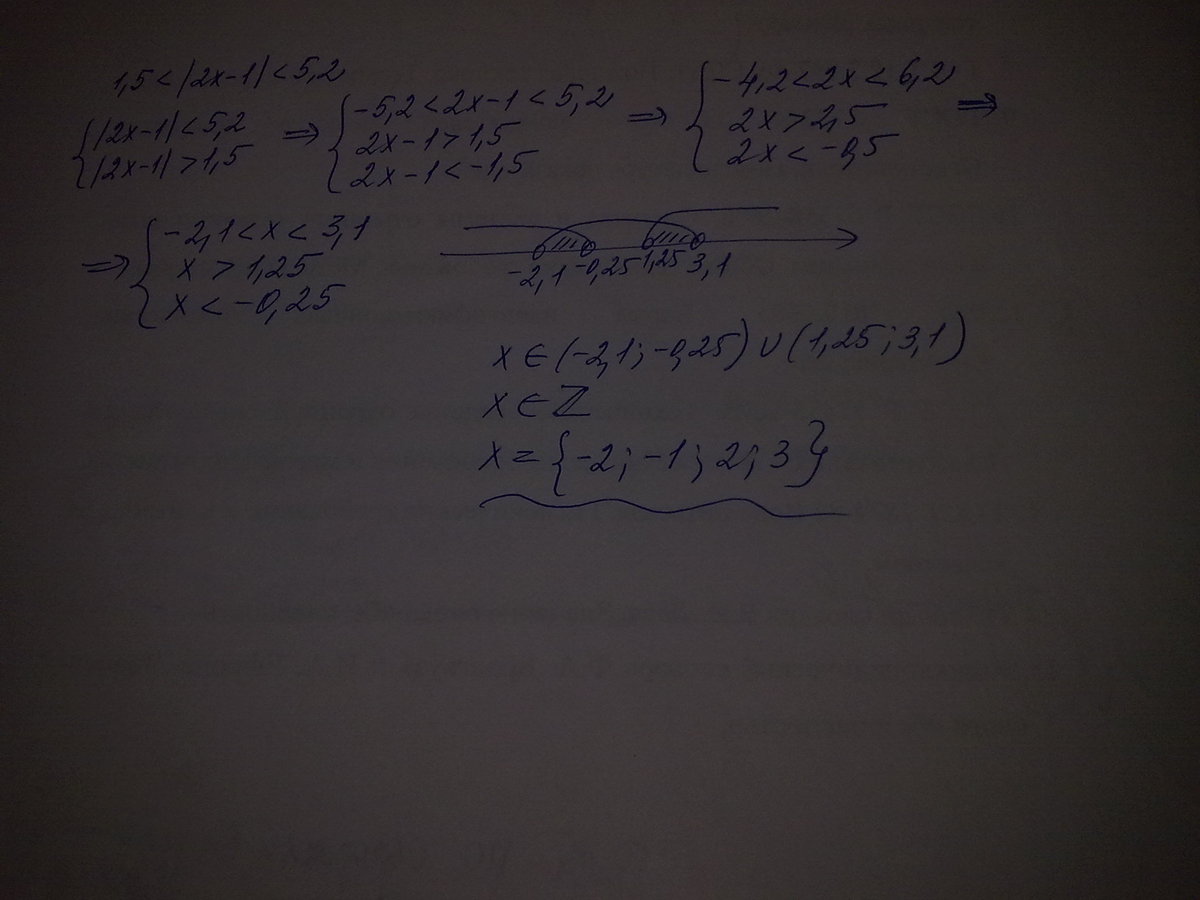 1,5 < |2x-1| < 5,2
{ |2x-1| < 5,2
|2x-1| > 1,5
⇒ { -5,2 < 2x-1 < 5,2
2x-1 > 1,5
2x-1 < -1,5
⇒ { -4,2 < 2x < 6,2
2x > 2,5
2x < -0,5
⇒
⇒ { -2,1 < x < 3,1
x > 1,25
x < -0,25
-2,1 -0,25 1,25 3,1
x ∈ (-2,1; -0,25) ∪ (1,25; 3,1)
x ∈ ℤ
x = {-2; -1; 2; 3}